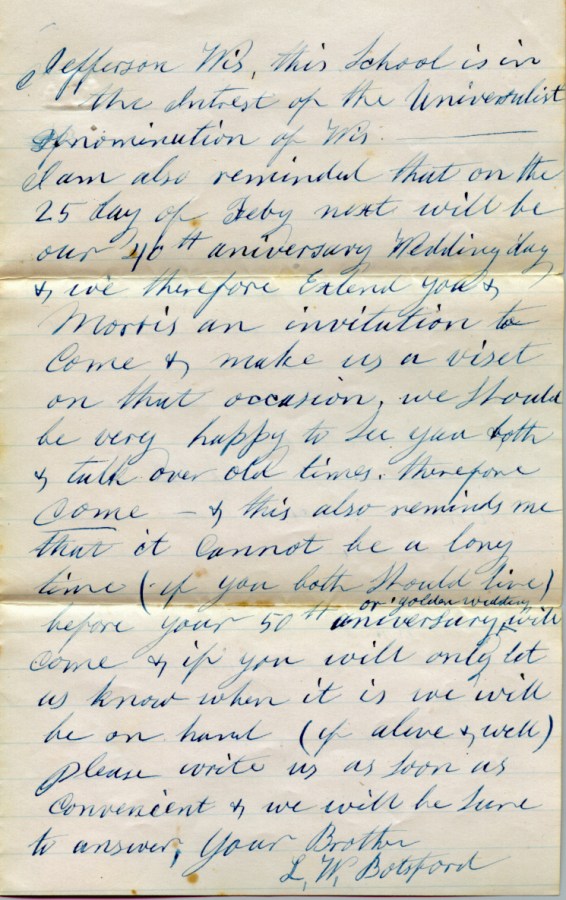 Jefferson Wis, this School is in
the Intrest of the Universulist
Denominution of Wis.
I am also reminded that on the
25 day of Feby next will be
our 40th aniversary Wedding day
& we therefore Extend you &
Morris an invitation to
Come & make us a viset
on that occasion, we Should
be very happy to See you both
& talk over old times. therefore
Come – & this also reminds me
that it Cannot be a long
time (if you both Should live)
or "golden wedding
before your 50th aniversary will
Come & if you will only let
us know when it is we will
be on hand (if alive & well)
please write us as Soon as
Convenient & we will be Sure
to answer, Your Brother
L, W, Botsford